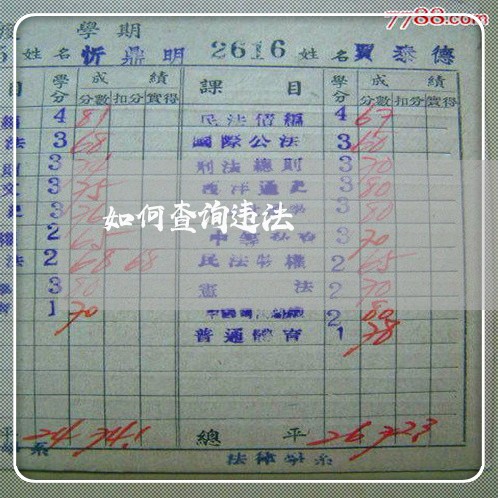 7788.com
學期
5 姓名 忻鼎明 2616 姓名 賈泰德
目 學分 成績 課目 學分 成績
分數 扣分 實得 分數 扣分 實得
4 81 民法債編 4 67
法 3 68 國際公法 3 60
3 刑法總則 3 70
3 75 西洋通史 3 80
3 80
如何查询违法
2 3 70
法 2 68 68 民法物權 2 65
3 80 憲法 2 70
1 70 2 80
普通體育 1 78
平 24 74.1 總平 26 72.3
系 法律學系